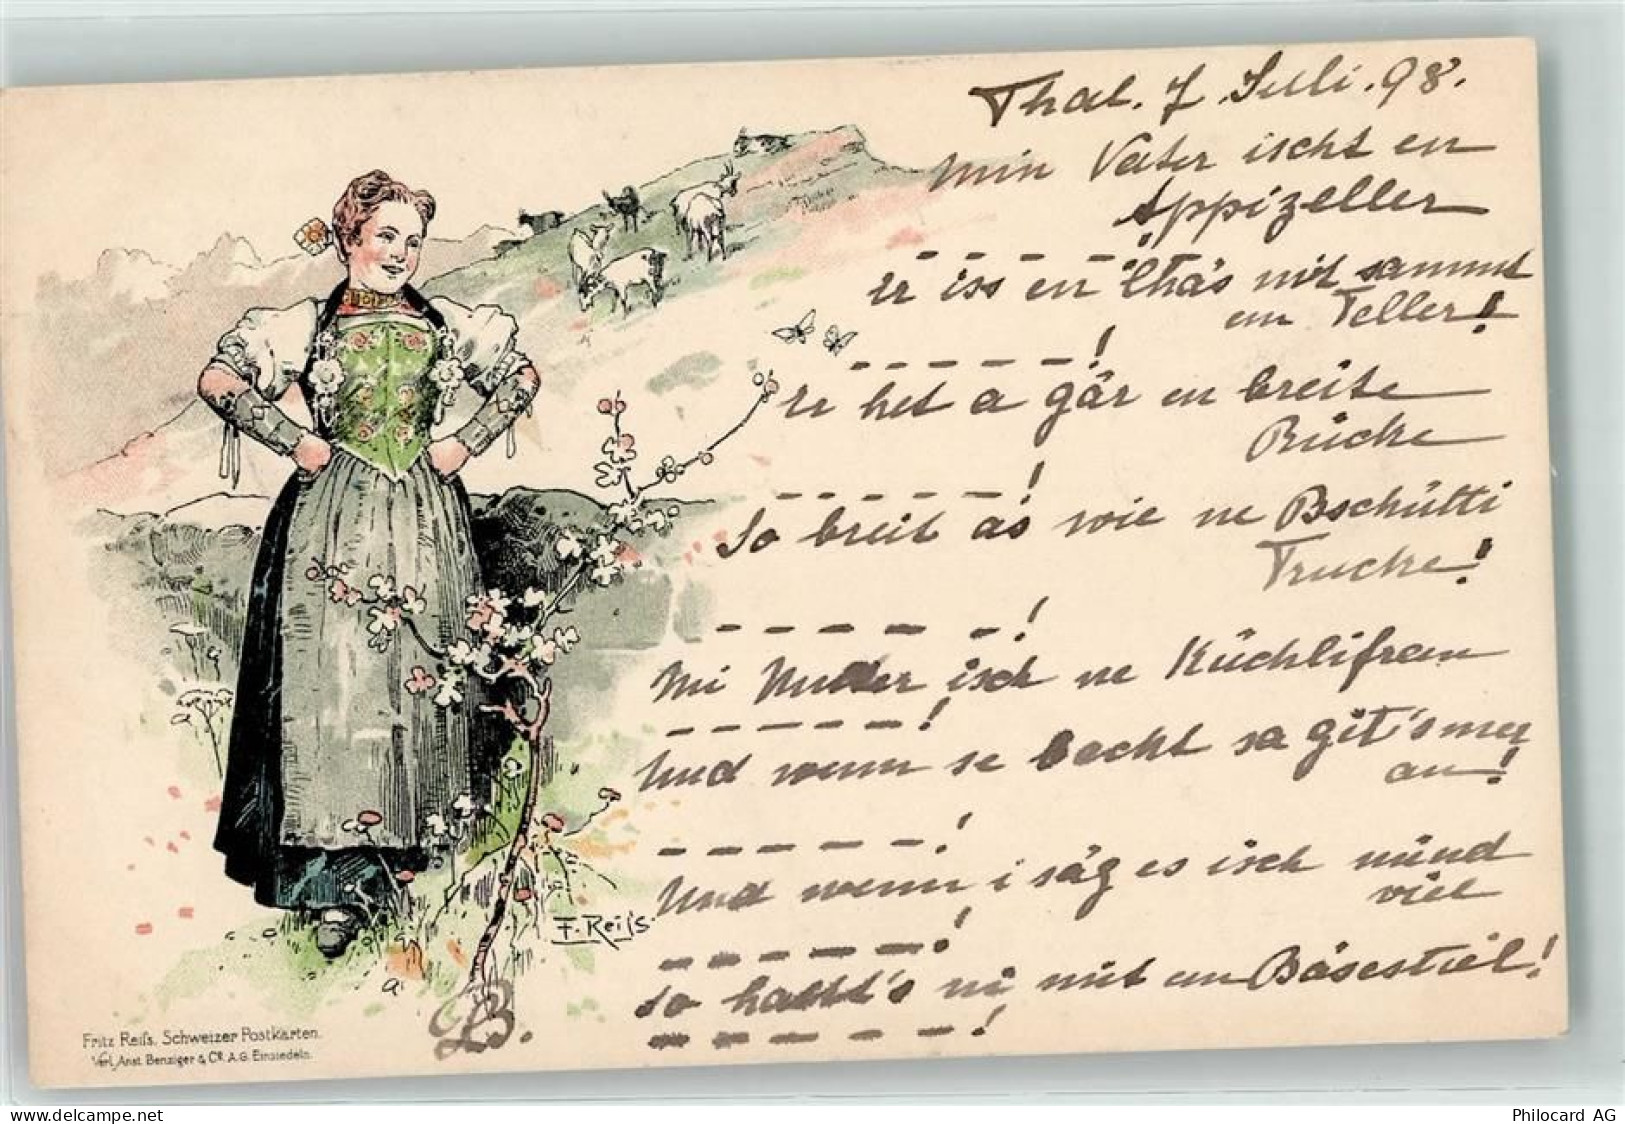 Thal. 7. Juli. 98.
Min Vater ischt en
Appizeller
- - - - -
Er iss en Chäs mit sammt
em Teller!
- - - - - !
Er het a gär en breite
Rücke
- - - - - !
So breit as wie ne Bschütti
Trucke!
- - - - - !
Mi Mutter isch ne Küchlifrau
- - - - - !
Und wenn se bacht sa git's mer
au!
- - - - - !
Und wenn i säg es isch nünd
viel
- - - - - !
so haut's mi mit em Bäsestiel!
- - - - - !
B.
F. Reiſs.
Fritz Reiſs, Schweizer Postkarten.
Verl. Anst. Benziger & Co. A.G. Einsiedeln.
www.delcampe.net
Philocard AG